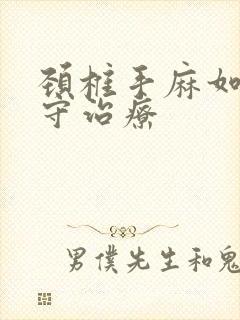 颈椎手麻如
守治疗
男僕先生和鬼